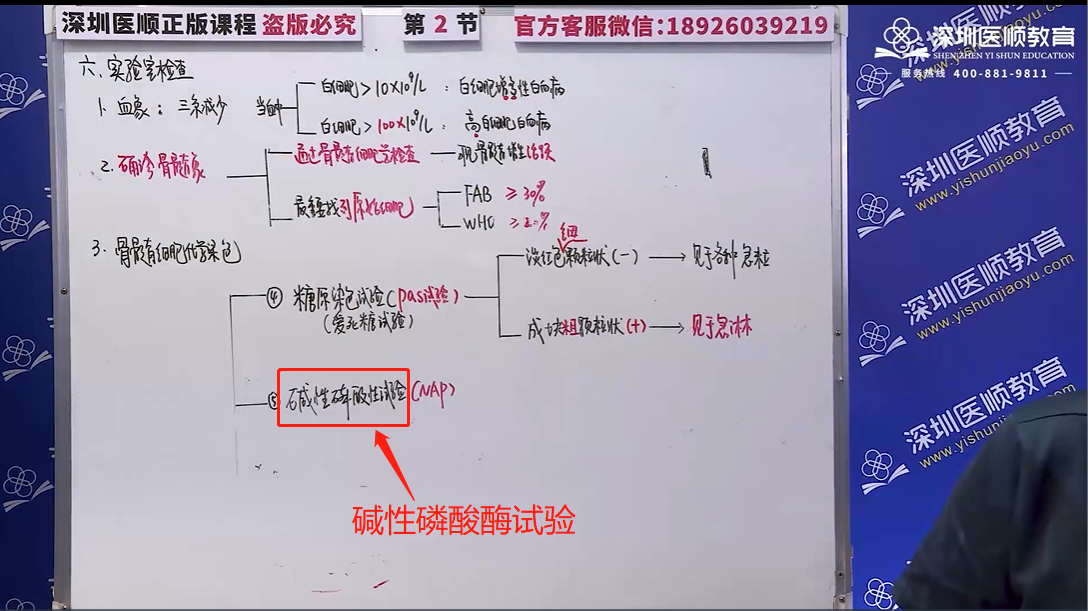 深圳医顺正版课程 盗版必究
第 2 节
官方客服微信:18926039219
深圳医顺教育
SHENZHEN YI SHUN EDUCATION
服务热线 400-881-9811
六、实验室检查
1. 血象：三系减少
当白中
白细胞>10×10⁹/L：白细胞增高性白血病
白细胞>100×10⁹/L：高白细胞白血病
2. 确诊骨髓象
通过骨髓有细胞学检查
现骨髓有增生活跃
最主要找到原始细胞
FAB ≥30%
WHO ≥20%
3. 骨髓有细胞化学染色
④ 糖原染色试验(pas试验)
(爱死糖试验)
细
淡红色颗粒状(-) → 见于各种急粒
成块粗颗粒状(+) → 见于急淋
⑤ 碱性磷酸性试验(NAP)
碱性磷酸酶试验
深圳医顺教育
www.yishunjiaoyu.com
深圳医顺教育
www.yishunjiaoyu.com
深圳医顺教育
www.yishunjiaoyu.com